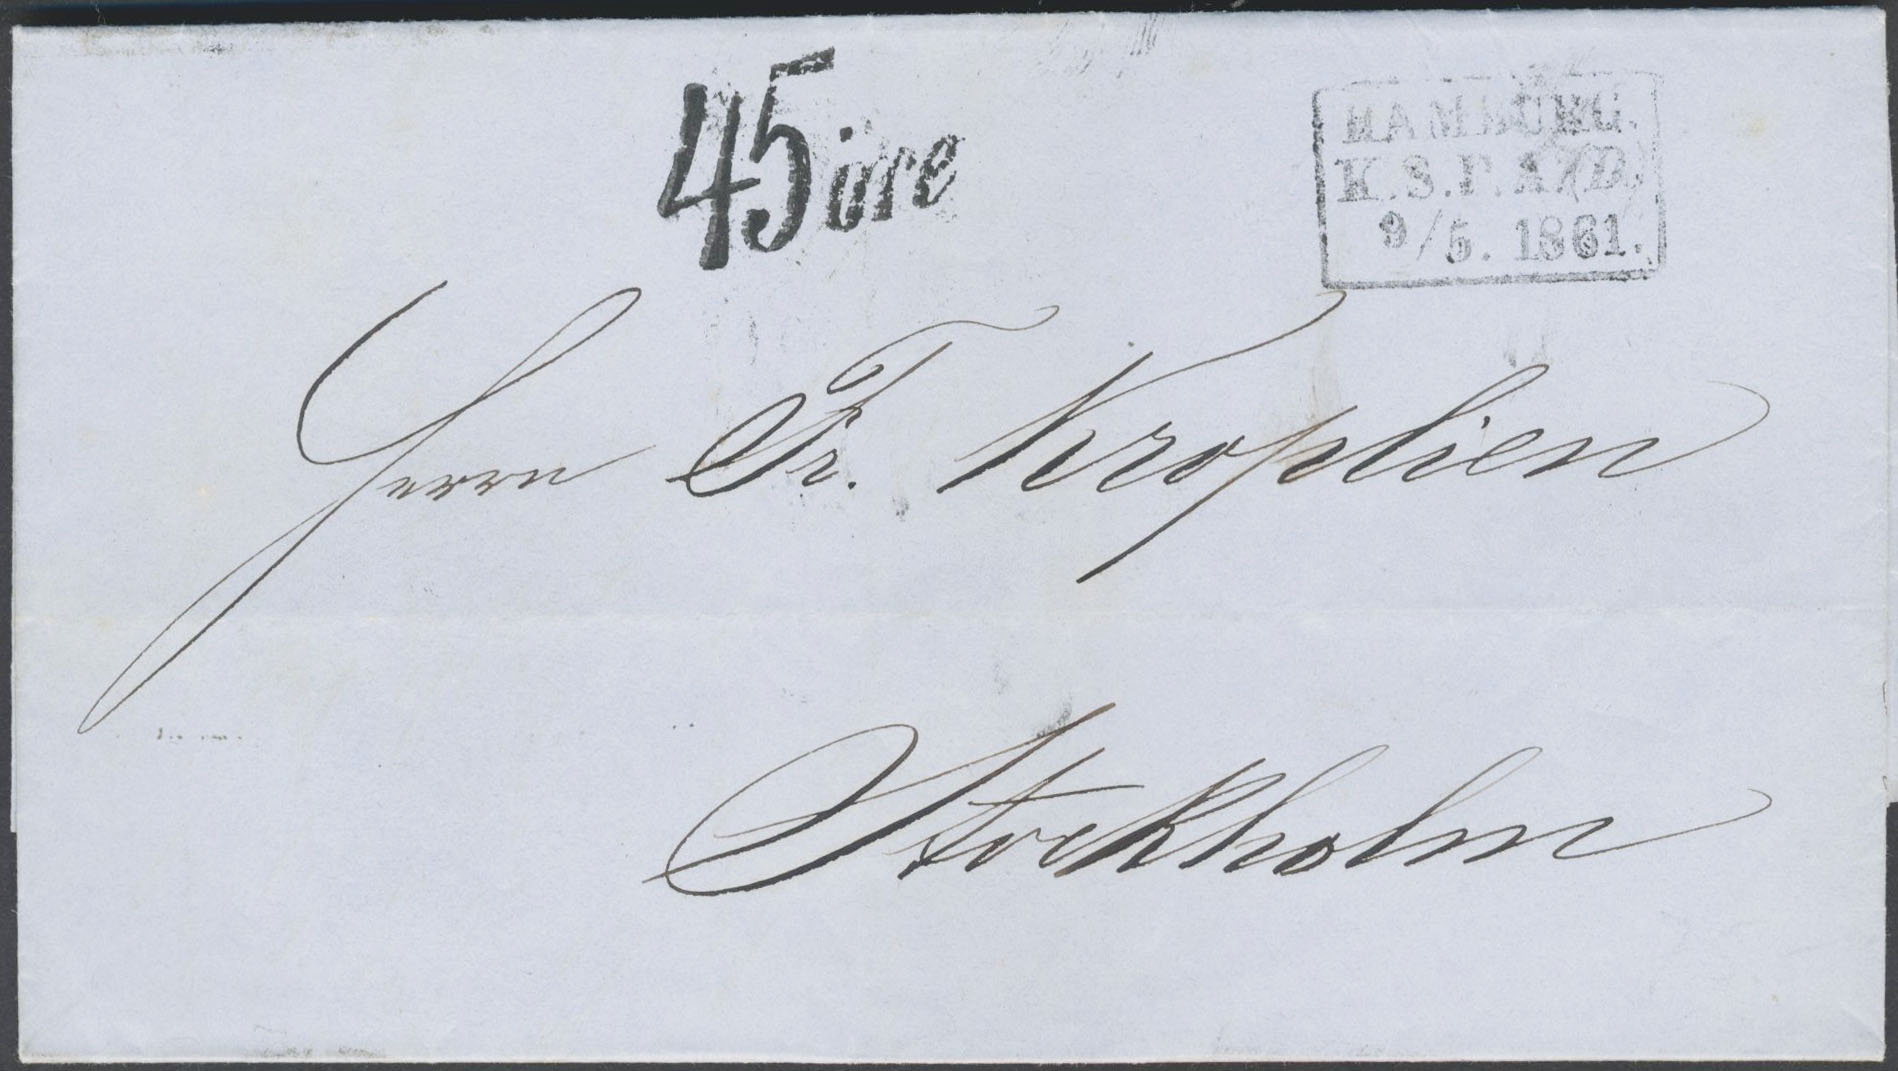 45 öre
HAMBURG.
K.S.P.A.(D)
9/5. 1861.
Herrn Fr. Kroplien
Stockholm